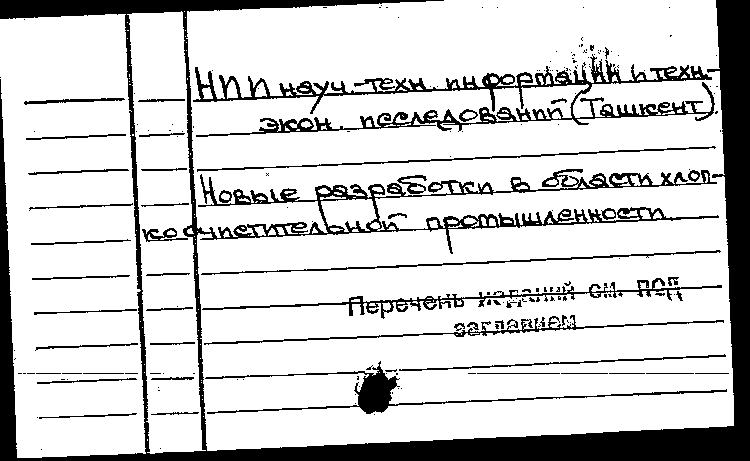 НИИ науч.-техн. информации и техн.-
экон. исследований (Ташкент).
Новые разработки в области хлоп-
коочистительной промышленности.
Перечень изданий см. под
заглавием